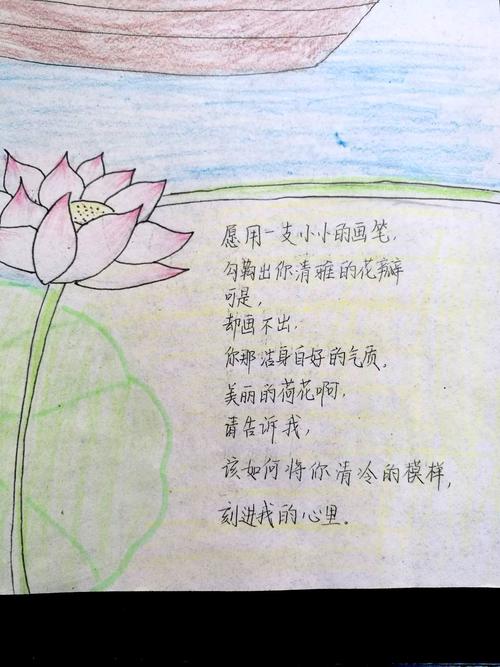 愿用一支小小的画笔,
勾勒出你清雅的花瓣
可是,
却画不出,
你那洁身自好的气质。
美丽的荷花啊,
请告诉我,
该如何将你清冷的模样,
刻进我的心里。